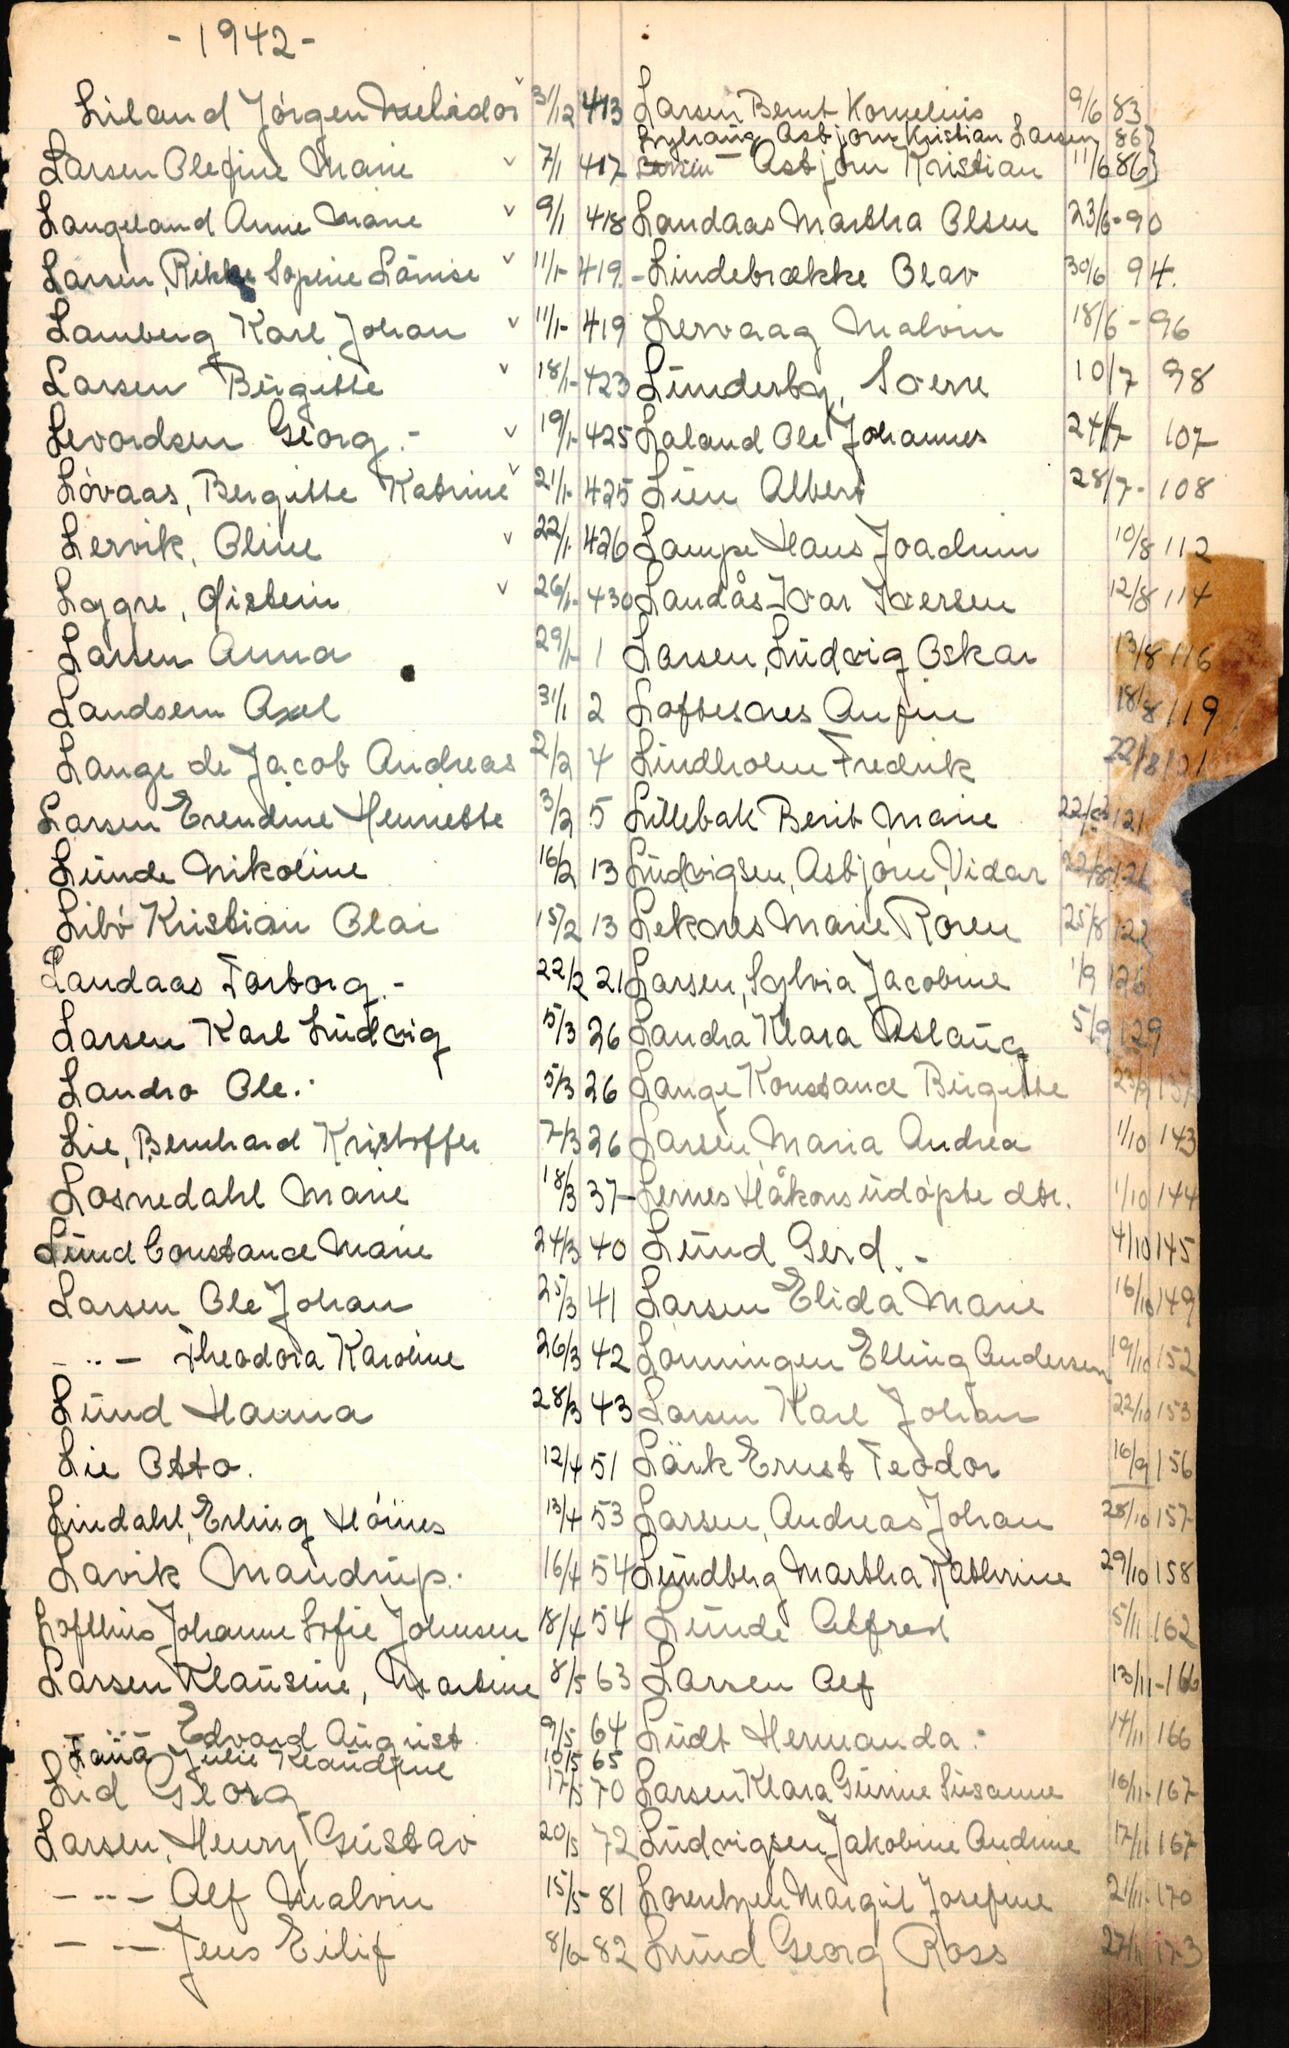 - 1942 -
Liland Jörgen Melidor v 31/12 473
Larsen Olefine Marie v 7/1 417
Langeland Anne Marie v 9/1 418
Larsen, Rikke Sopine Lövise v 11/1- 419.-
Lamberg Karl Johan v 11/1- 419
Larsen Birgitte v 18/1- 423
Levordsen Georg.- v 19/1- 425
Lövaas, Bergitte Katrine v 21/1- 425
Lervik, Oline v 22/1- 426
Lygre, Öistein v 26/1- 430
Larsen Anna 29/1- 1
Landsem Axel 31/1 2
Lange de Jacob Andreas 2/2 4
Larsen Erendine Henriette 3/2 5
Lunde Nikoline 16/2 13
Libö Kristian Olai 15/2 13
Landaas Torborg.- 22/2 21
Larsen Karl Ludvig 5/3 26
Landro Ole. 5/3 26
Lie, Bernhard Kristoffer 7/3 26
Losnedahl Marie 18/3 37-
Lund Constance Marie 24/3 40
Larsen Ole Johan 25/3 41
- .. - Theodora Karoline 26/3 42
Lund Hanna 28/3 43
Lie Otto. 12/4 51
Lindahl, Erling Höines 13/4 53
Lavik Mandrup. 16/4 54
Johanne Sofie Johnsen 18/4 54
Larsen Klausine, Martine 8/5 63
Edvard August 9/5 64
Julie Klaudine 10/5 65
Lid Georg 17/5 70
Larsen, Henry Gustav 20/5 72
- .. - Alf Malvin 15/5- 81
- .. - Jens Eilif 8/6- 82
Larsen Bernt Kornelius 9/6 83
Lyhaug Asbjörn Kristian Larsen 86}
Larsen - Asbjörn Kristian 11/6 86}
Landaas Martha Olsen 23/6- 90
Lindebrække Olav 30/6 94.
Lervaag Malvin 18/6 - 96
Lunderby, Sverre 10/7 98
Laland Ole Johannes 24/7 107
Lien Albert 28/7- 108
Lampe Hans Joachim 10/8 112
Landås Ivar Iversen 12/8 114
Larsen, Ludvig Oskar 13/8 116
Loftesnes Anfin 18/8 119
Lindholm Fredrik 22/8 121
Lillebak Berit Marie 22/8 121
Ludvigsen, Asbjörn, Vidar 22/8 121
Leknes Marie Roren 25/8 122
Larsen, Sylvia Jacobine 1/9 126
Landra Klara Aslaug 5/9 129
Lange Konstance Birgitte 23/9 137
Larsen, Maria Andrea 1/10 143
Lernes Håkons udöpte dtr. 1/10 144
Lund Gerd.- 4/10 145
Larsen Elida Marie 16/10 149
Lönningen Elling Andersen 19/10 152
Larsen Karl Johan 22/10 153
Lärk Ernst Teodor 16/9 156
Larsen, Andreas Johan 28/10 157
Lundberg Martha Kathrine 29/10 158
Lunde Alfred 5/11 162
Larsen Alf 13/11- 166
Ludt Hermanda.- 14/11 166
Larsen Klara Gunine Susanne 16/11- 167
Ludvigsen, Jakobine Andrine 17/11 167
Lorentzen Margit Josefine 21/11- 170
Lund Georg Ross 27/11 173